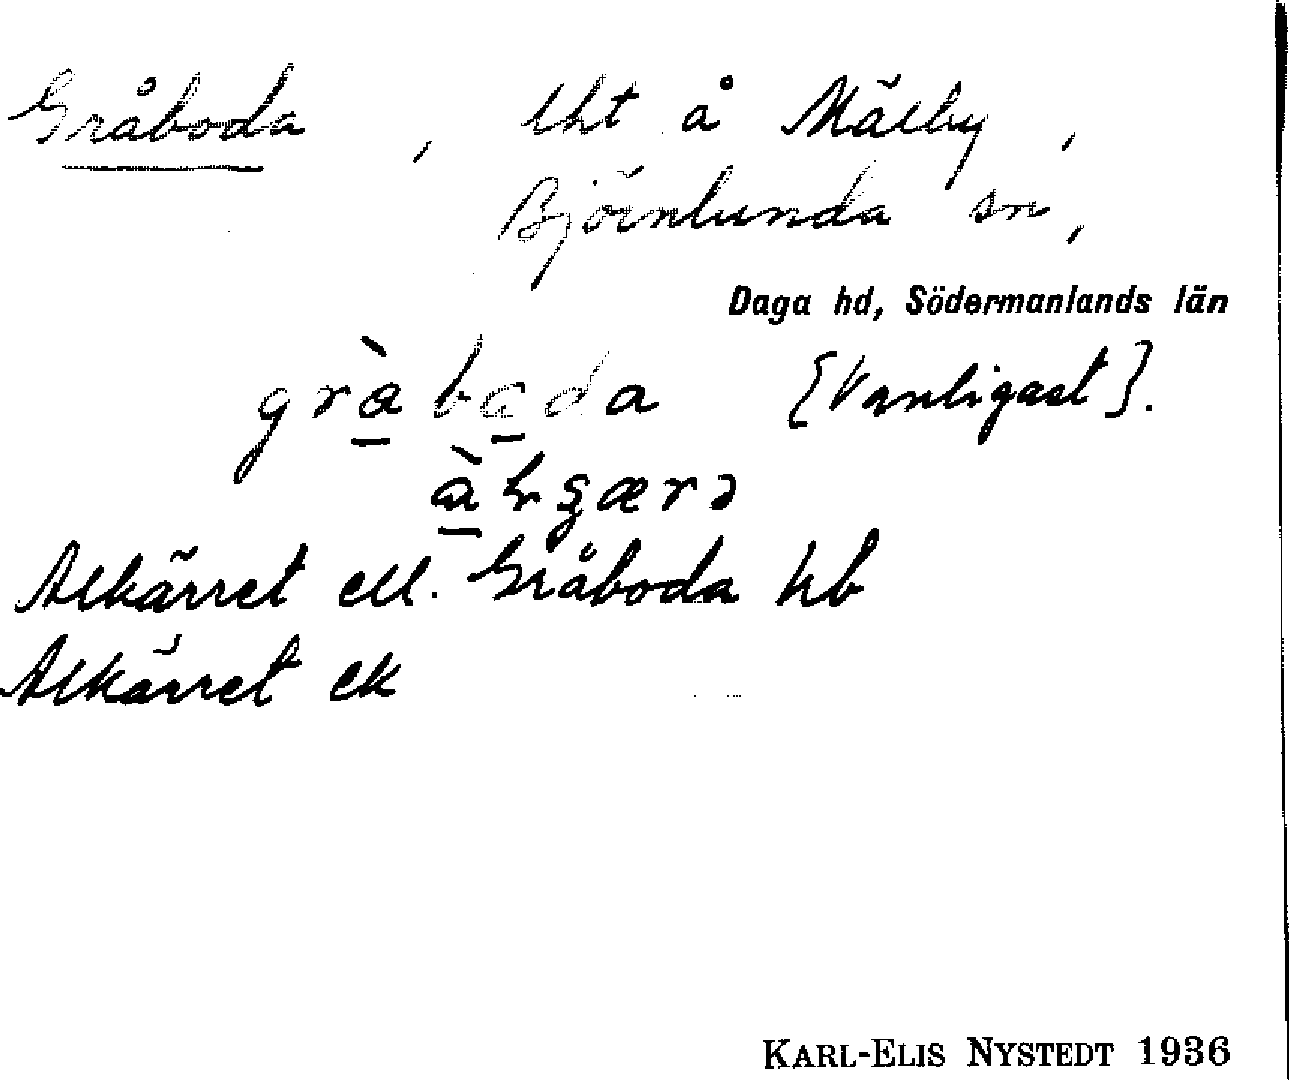 Gråboda, lht å Mälby,
Björnlunda sn,
Daga hd, Södermanlands län
gràbada [Vanligast].
Alkärret ell. Gråboda hb
Alkärret ek
KARL-ELIS NYSTEDT 1936